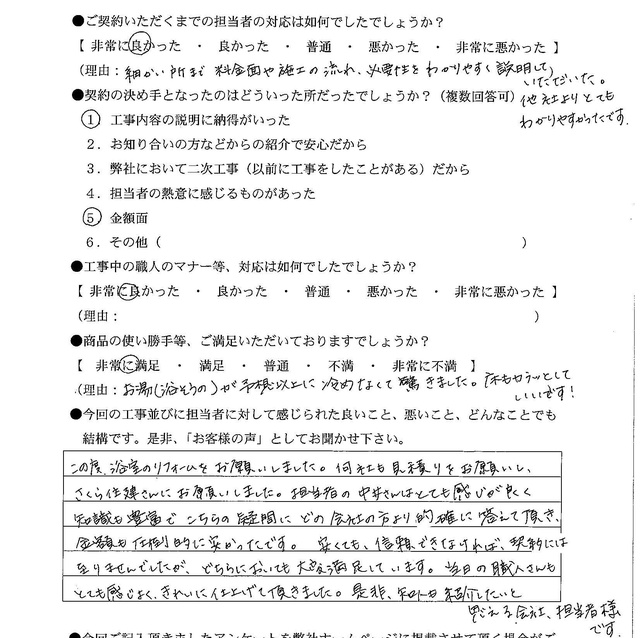 ●ご契約いただくまでの担当者の対応は如何でしたでしょうか？
【 非常に良かった ・ 良かった ・ 普通 ・ 悪かった ・ 非常に悪かった 】
（理由：細かい所まで 料金面や施工の流れ、必要性をわかりやすく説明して
いただいた。
他社よりとても
わかりやすかったです。
●契約の決め手となったのはどういった所だったでしょうか？（複数回答可）
① 工事内容の説明に納得がいった
２．お知り合いの方などからの紹介で安心だから
３．弊社において二次工事（以前に工事をしたことがある）だから
４．担当者の熱意に感じるものがあった
⑤ 金額面
６．その他（ ）
●工事中の職人のマナー等、対応は如何でしたでしょうか？
【 非常に良かった ・ 良かった ・ 普通 ・ 悪かった ・ 非常に悪かった 】
（理由： ）
●商品の使い勝手等、ご満足いただいておりますでしょうか？
【 非常に満足 ・ 満足 ・ 普通 ・ 不満 ・ 非常に不満 】
（理由：お湯（浴そうの）が予想以上に冷めなくて驚きました。床もカラッとして
いいです！
●今回の工事並びに担当者に対して感じられた良いこと、悪いこと、どんなことでも
結構です。是非、「お客様の声」としてお聞かせ下さい。
この度、浴室のリフォームをお願いしました。何社も見積りをお願いし、
さくら住建さんにお願いしました。担当者の中井さんはとても感じが良く
知識も豊富でこちらの疑問にどの会社の方より的確に答えて頂き、
金額も圧倒的に安かったです。安くても、信頼できなければ、契約には
至りませんでしたが、どちらにおいても大変満足しています。当日の職人さんも
とても感じよく、きれいに仕上げて頂きました。是非、知人にも紹介したいと
思える会社、担当者様
です
●今回ご記入頂きましたアンケートを弊社ホームページに掲載させて頂く場合がご